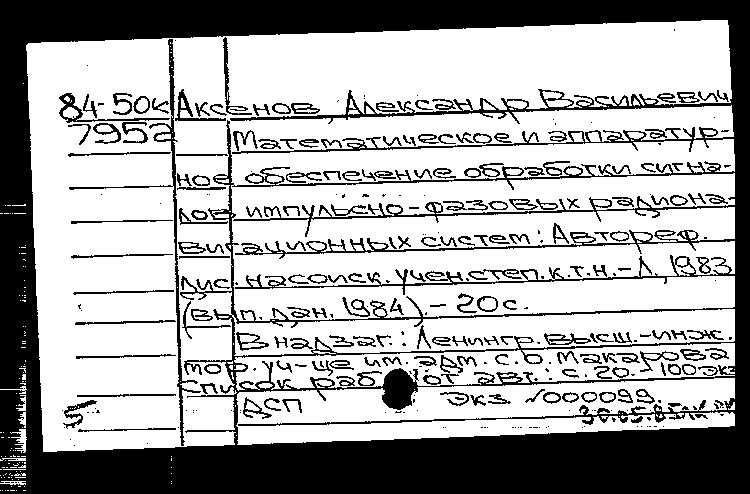 84-50к Аксенов, Александр Васильевич
7952 Математическое и аппаратур-
ное обеспечение обработки сигна-
лов импульсно-фазовых радиона-
вигационных систем: Автореф.
дис. на соиск. учен. степ. к.т.н. - Л., 1983
(вып. дан. 1984) - 20 с.
В надзаг.: Ленингр. высш. инж.
мор. уч-ще им. адм. С.О. Макарова
Список раб. от авт.: с. 20. - 100 экз
ДСП Экз №000099.
5 30.05.85